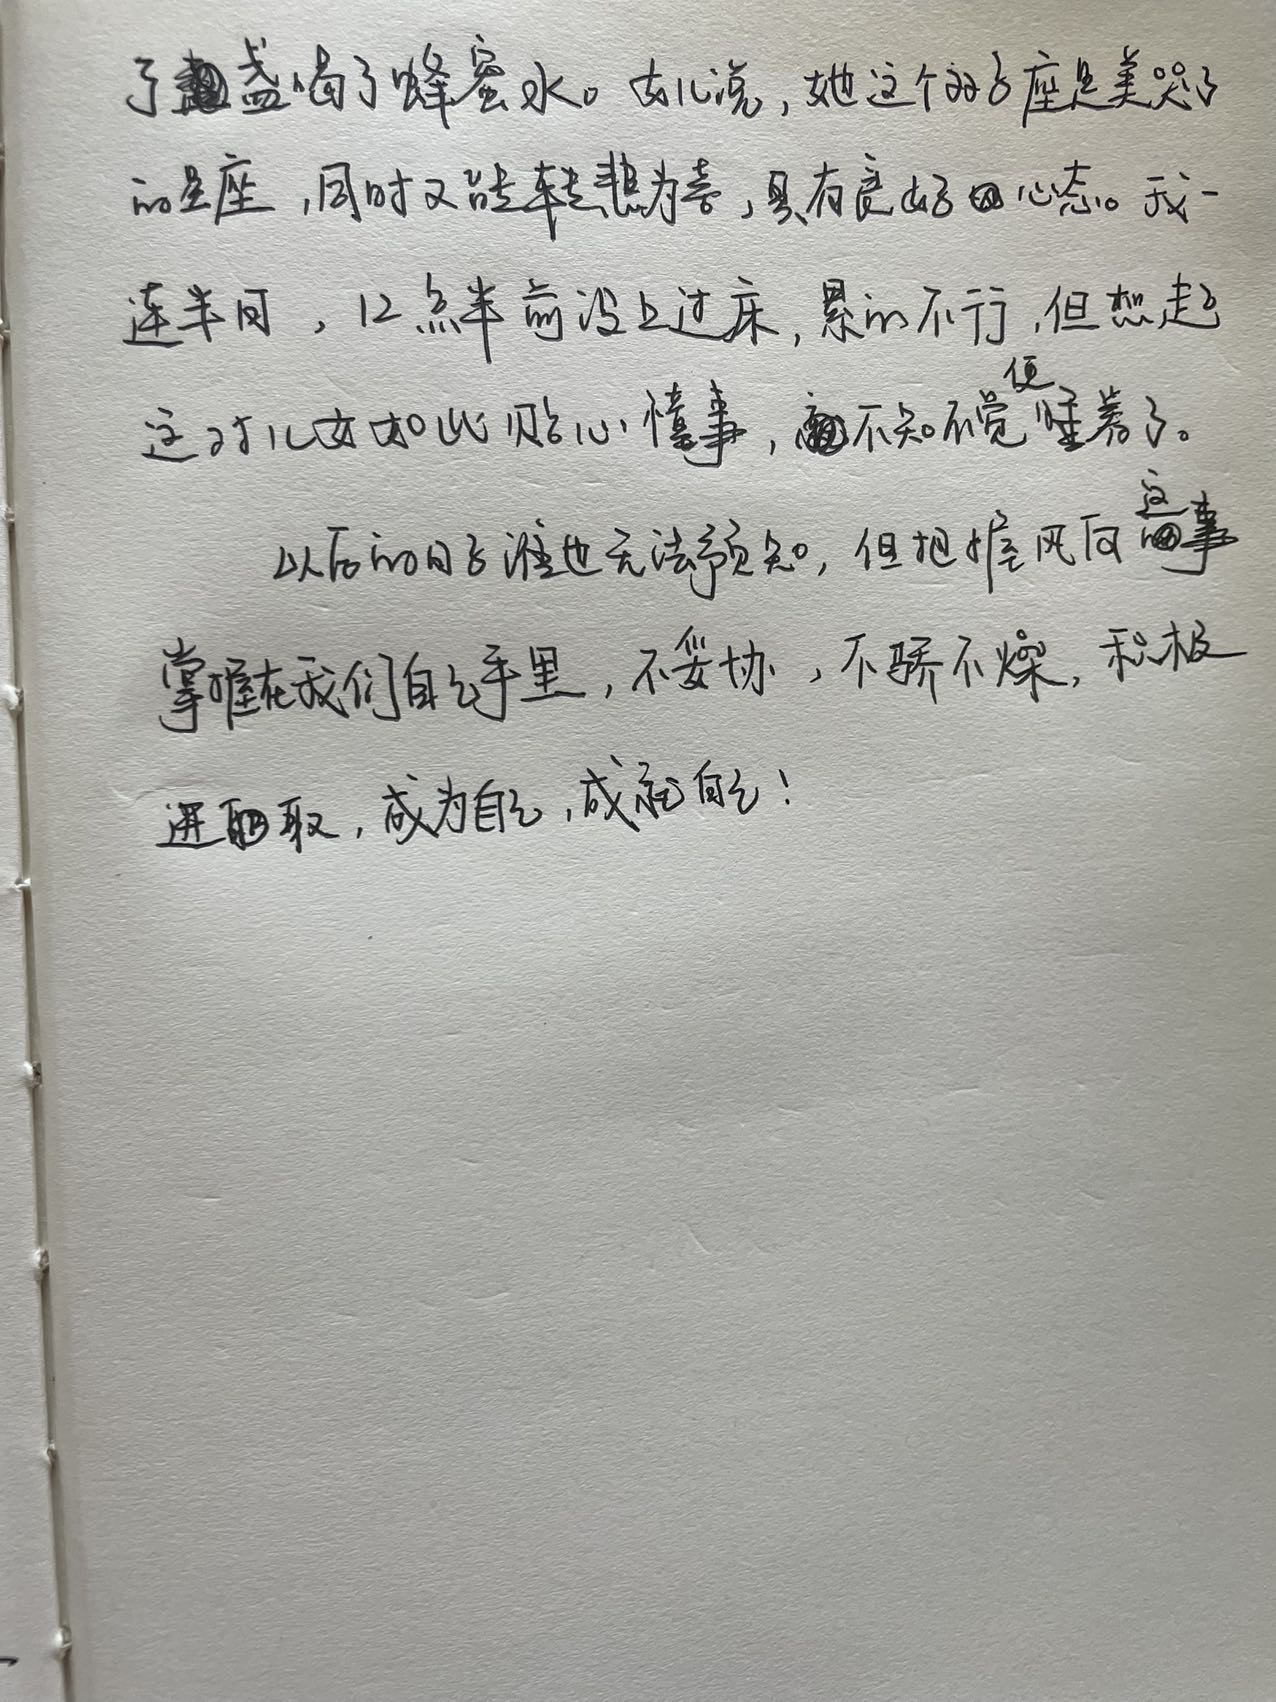 了盏喝了蜂蜜水。女儿说，她这个双子座是美哭了
的星座，同时又能转悲为喜，具有良好的心态。我一
连半月，12点半前没上过床，累的不行，但想起
这对儿女如此贴心懂事，不知不觉便睡着了。
以后的日子谁也无法预知，但把握风向这事
掌握在我们自己手里，不妥协，不骄不燥，积极
进取，成为自己，成就自己！